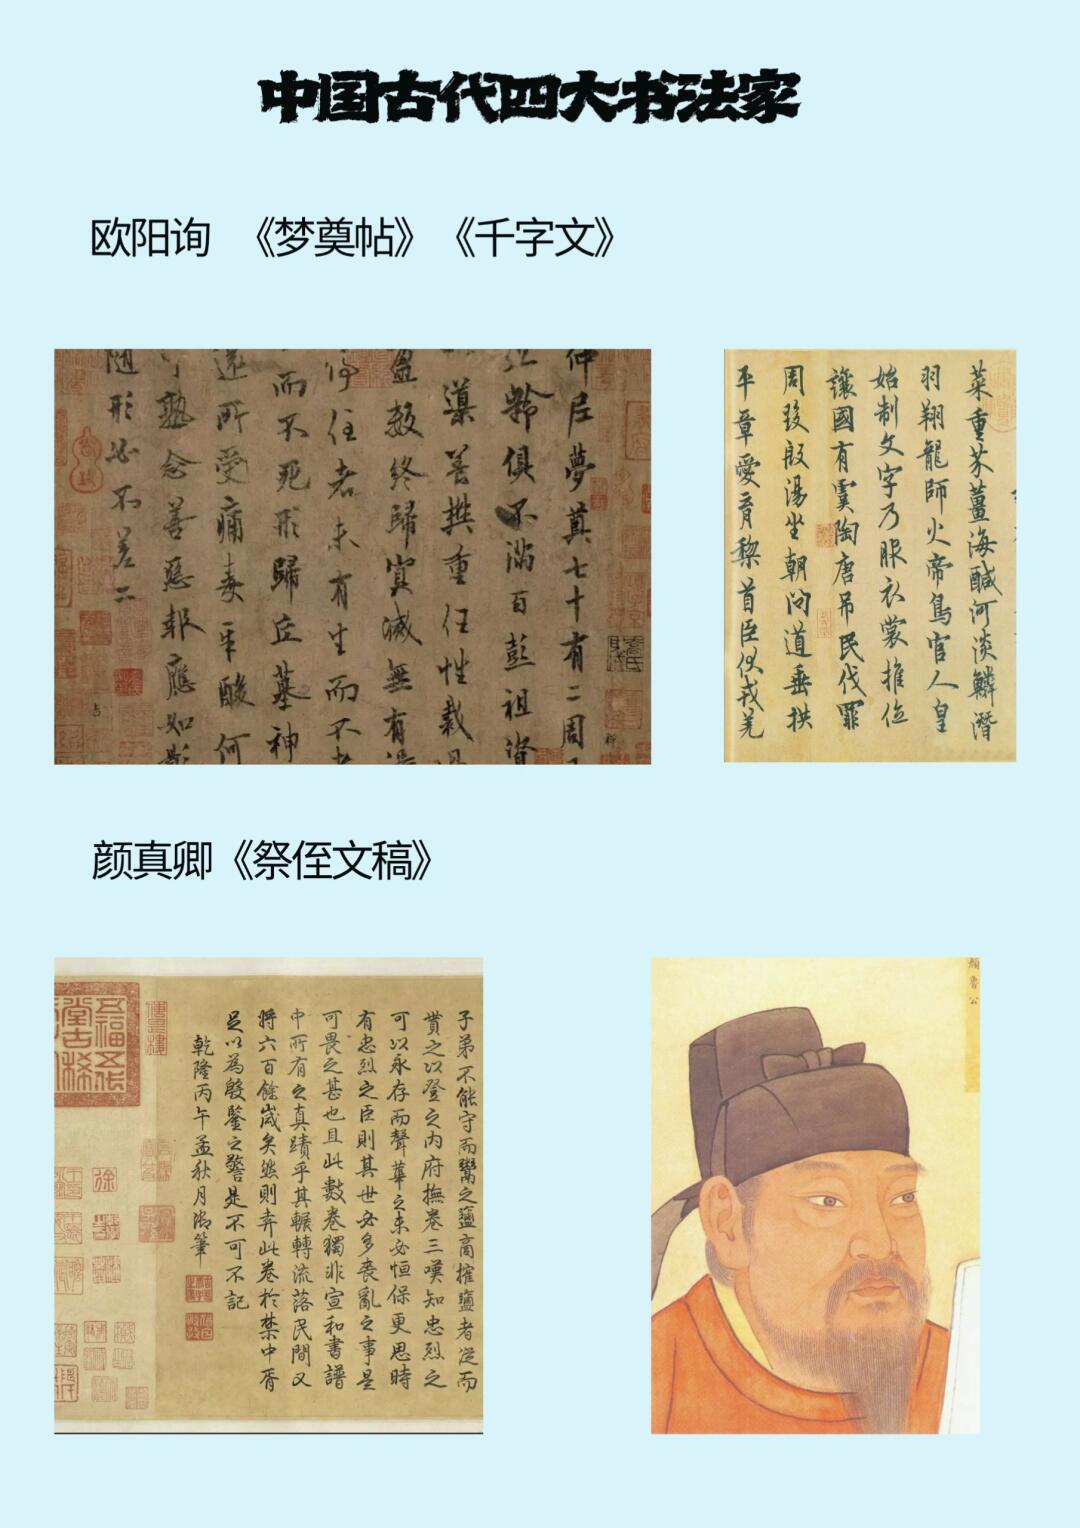 中国古代四大书法家
欧阳询 《梦奠帖》《千字文》
仲尼夢奠七十有二周
齡俱不滿百彭祖資
藥善攝重任性裁過
盈數終歸冥滅無有
停住者未有生而不
而不死形歸丘墓神
還所受痛毒辛酸何
可熟念善惡報應如影
随形必不差二
菜重芥薑海鹹河淡鱗潛
羽翔龍師火帝鳥官人皇
始制文字乃服衣裳推位
讓國有虞陶唐吊民伐罪
周發殷湯坐朝問道垂拱
平章愛育黎首臣伏戎羌
颜真卿《祭侄文稿》
子弟不能守而鬻之鹽商攉鹽者從而
貰之以登之内府撫卷三嘆知忠烈之
可以永存而聲華之未必恒保更思時
有忠烈之臣則其世必多喪亂之事是
可畏之甚也且此數卷獨非宣和書譜
中所有之真蹟乎其輾轉流落民間又
將六百餘歲矣然則弆此卷於禁中胥
足以為殷鑒之警是不可不記
乾隆丙午孟秋月御筆
顏魯公